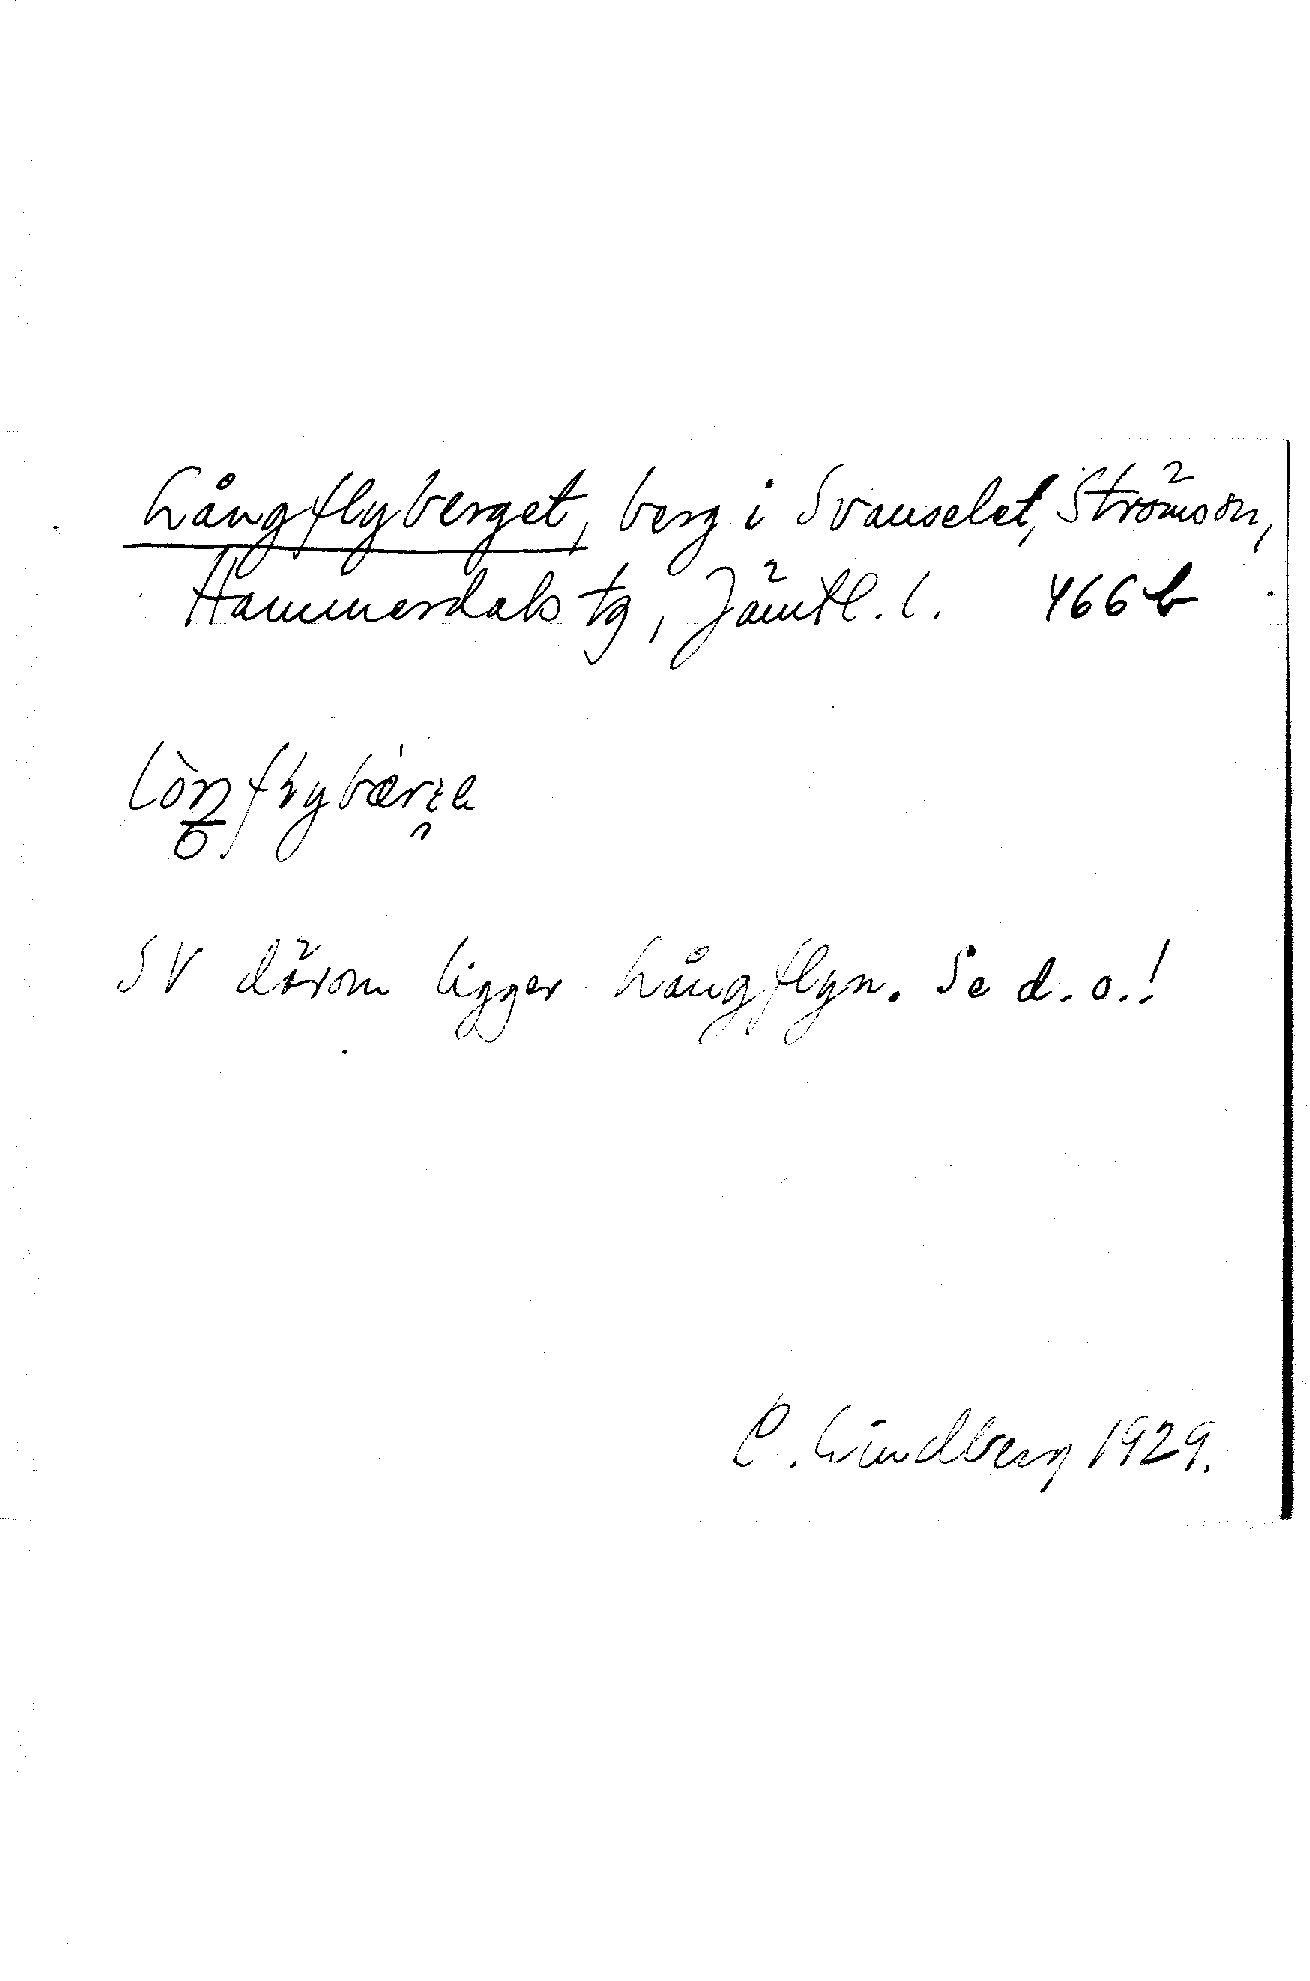 Långflyberget, berg i Svanselet, Ströms sn,
Hammerdals tg, Jämtl. l. 466 b
SV därom ligger Långflyn. Se d. o.!
C. Lindberg 1929.